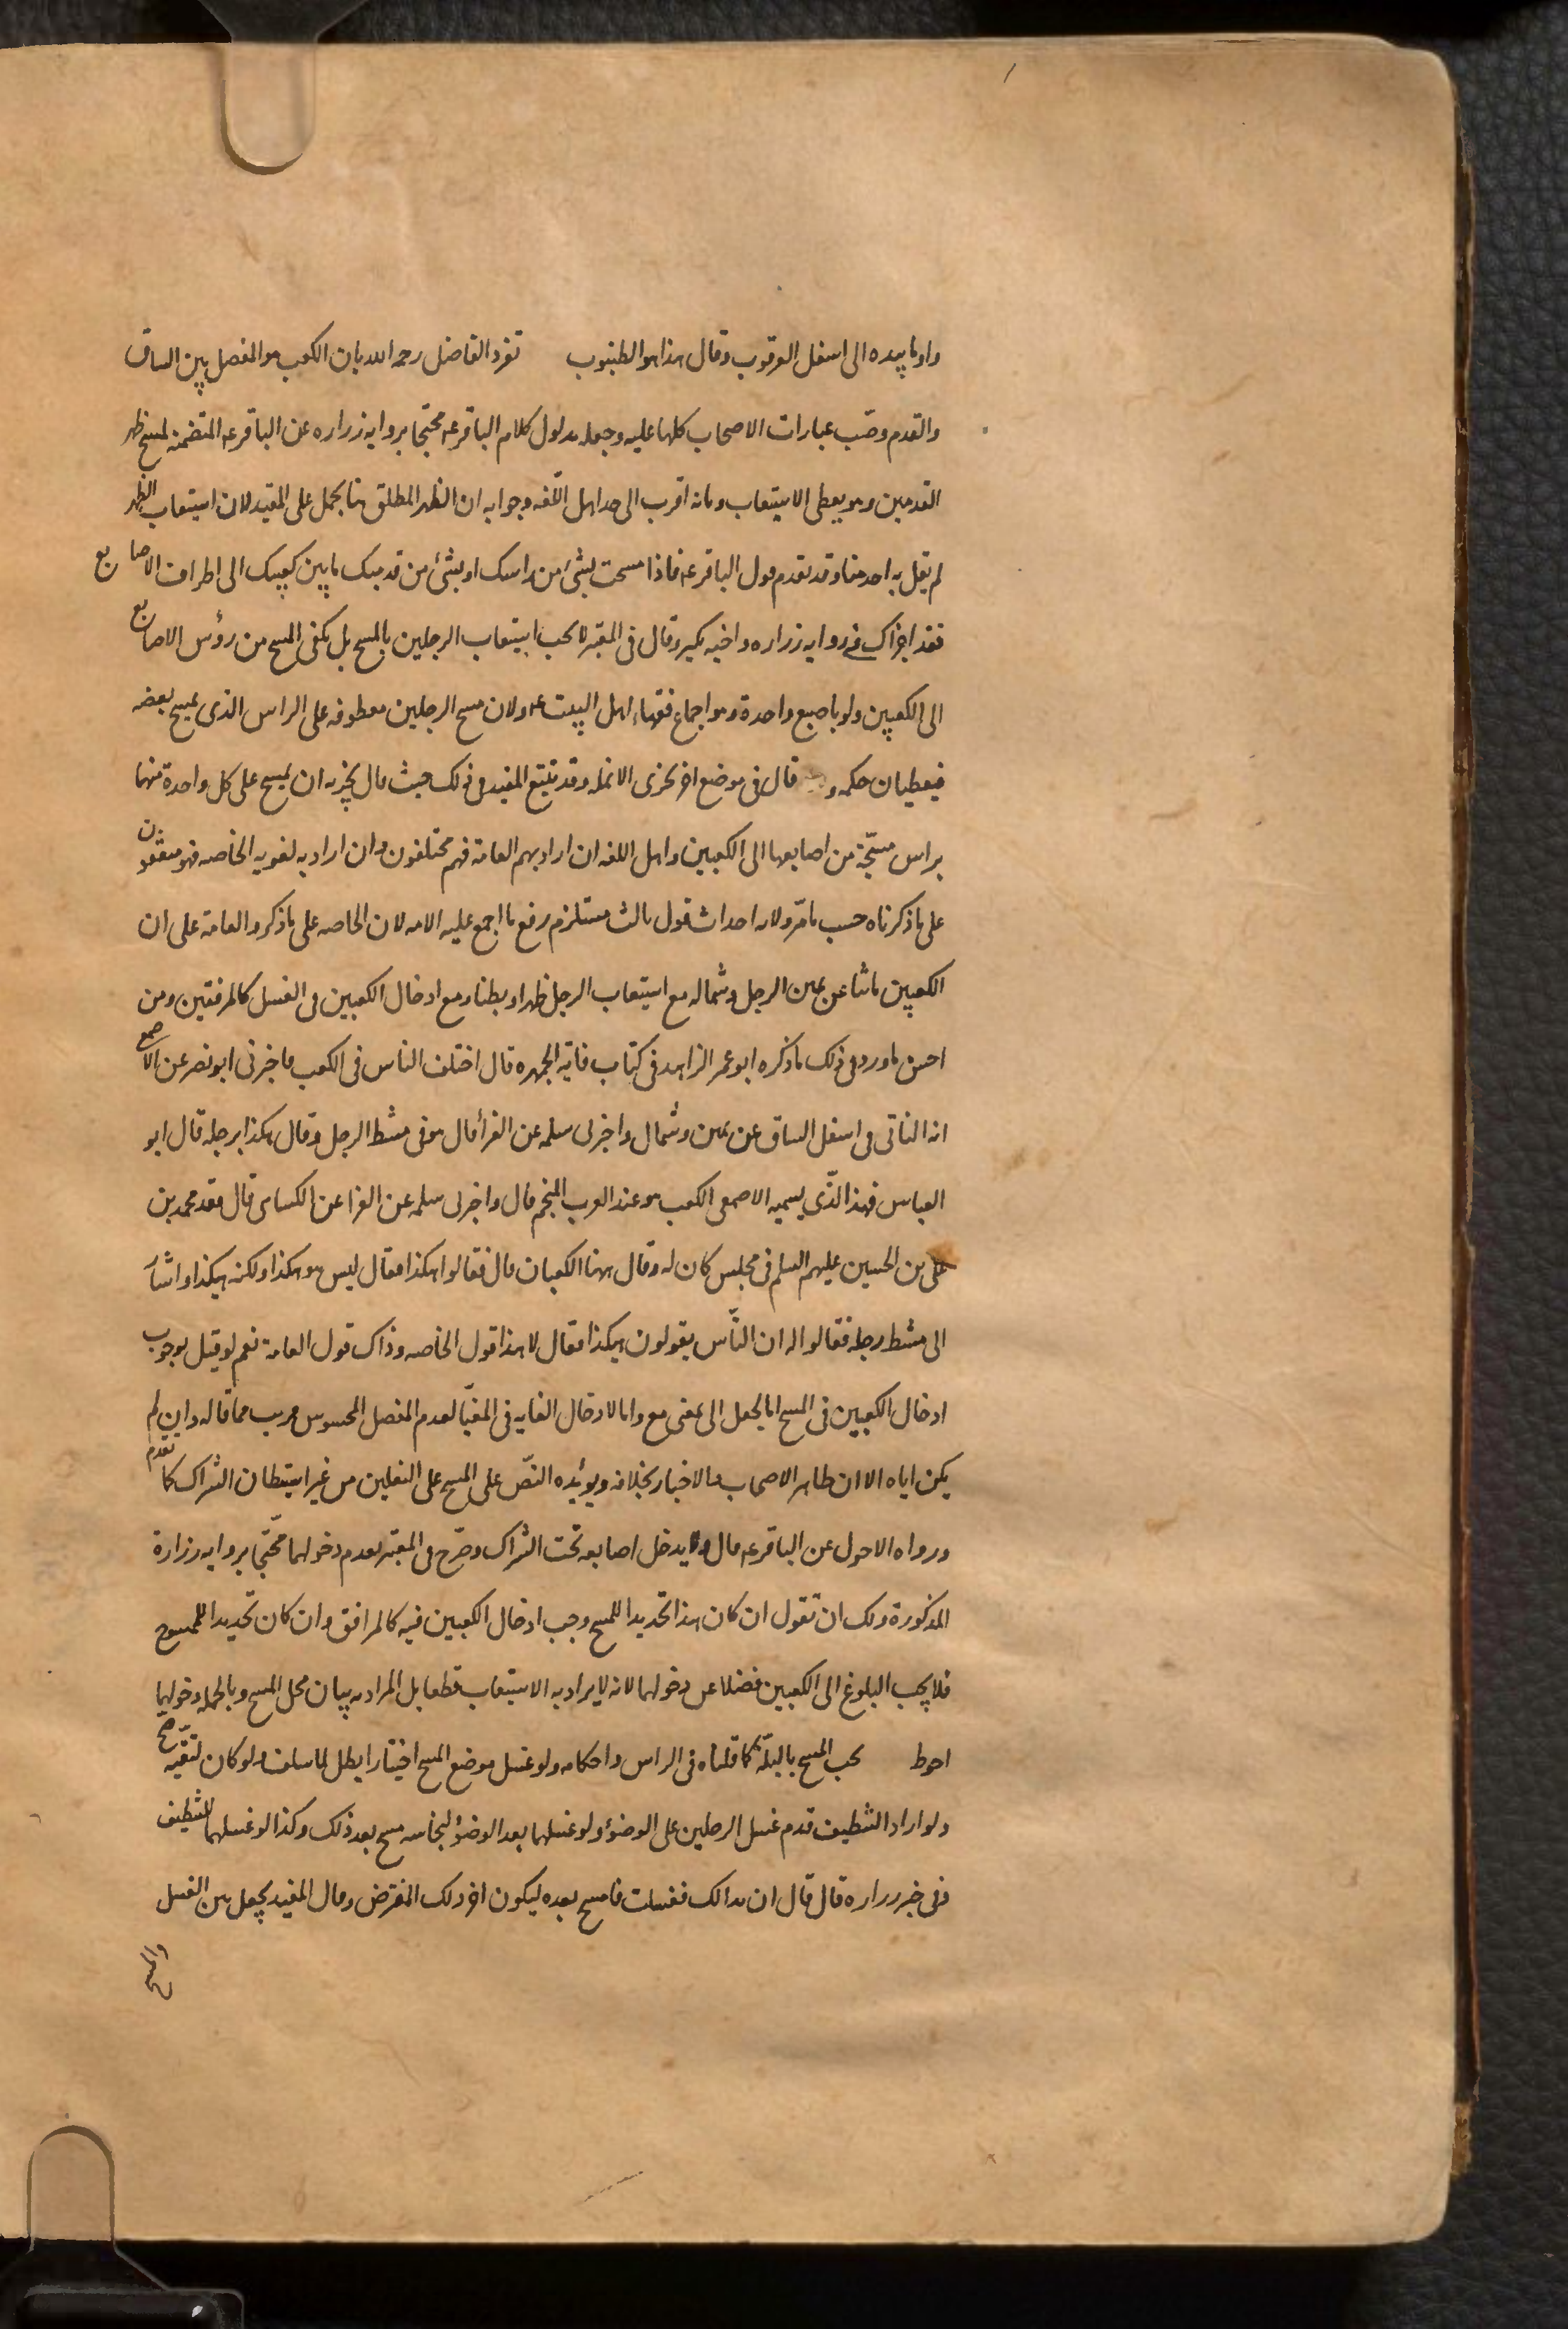 واوما بيده الى اسفل العرقوب وقال هذا هو الظنبوب تفرد الفاضل رحمه الله بان الكعب هو المفصل بين الساق
والقدم وصب عبارات الاصحاب كلها عليه وجعله مدلول كلام الباقر عه محتجا بروايه زراره عن الباقر عه المتضمنه لمسح ظهر
القدمين وهو يعطى الاستيعاب وبانه اقرب الى حد اهل اللغه وجوابه ان الظهر المطلق هنا يحمل على المقيد لان استيعاب الظهر
لم يقل به احد منا وقد تقدم قول الباقر عه فاذا مسحت بشئ من راسك او بشئ من قدميك ما بين كعبيك الى اطراف الاصابع
فقد اجزاك فى روايه زراره واخيه بكير وقال فى المعتبر لا يجب استيعاب الرجلين بالمسح بل يكفى المسح من رؤس الاصابع
الى الكعبين ولو باصبع واحدة وهو اجماع فقهاء اهل البيت عه ولان مسح الرجلين معطوفه على الراس الذى يمسح بعضه
فيعطيان حكمه و قال فى موضع اخر يجزى الانمله وقد تبع المفيد فى ذلك حيث قال يجزيه ان يمسح على كل واحدة منهما
براس مسبّحة من اصابعها الى الكعبين واهل اللغه ان اراد بهم العامة فهم مختلفون وان اراد به لغويه الخاصه فهو متفقون
على ما ذكرناه حسب ما مرّ ولانه احداث قول ثالث مستلزم رفع ما اجمع عليه الامه لان الخاصه على ما ذكر والعامة على ان
الكعبين ما نتا عن يمين الرجل وشماله مع استيعاب الرجل ظهرا وبطنا ومع ادخال الكعبين فى الغسل كالمرفقين ومن
احسن ما ورد فى ذلك ما ذكره ابو عمر الزاهد فى كتاب فايت الجمهره قال اختلف الناس فى الكعب فاخبرنى ابو نصر عن الاصمعى
انه الناتى فى اسفل الساق عن يمين وشمال واخبرنى سلمه عن الفرأ قال هو فى مشط الرجل وقال هكذا برجله قال ابو
العباس فهذا الّذى يسميه الاصمعى الكعب هو عند العرب المنجم قال واخبرنى سلمه عن الفرا عن الكسائى قال قعد محمد بن
على بن الحسين عليهم السلم فى مجلس كان له وقال ههنا الكعبان قال فقالوا هكذا فقال ليس هو هكذا ولكنه هكذا واشار
الى مشط رجله فقالوا له ان النّاس يقولون هكذا فقال لا هذا قول الخاصه وذاك قول العامة نعم لو قيل بوجوب
ادخال الكعبين فى المسح اما لجعل الى بمعنى مع واما لادخال الغايه فى المغيّا لعدم المفصل المحسوس قرب مما قاله وان لم
يكن اياه الا ان ظاهر الاصحاب والاخبار بخلافه ويؤيده النصّ على المسح على النعلين من غير استبطان الشراك كما تقدم
ورواه الاحول عن الباقر عه قال ولا يدخل اصابعه تحت الشراك وصرّح فى المعتبر بعدم دخولهما محتجا بروايه زرارة
المذكورة ولك ان تقول ان كان هذا تحديدا للمسح وجب ادخال الكعبين فيه كالمرافق وان كان تحديدا للممسوح
فلا يجب البلوغ الى الكعبين فضلا عن دخولهما لانه لا يراد به الاستيعاب قطعا بل المراد به بيان محل المسح وبالجمله دخولهما
احوط يجب المسح بالبلّة كما قلناه فى الراس واحكامه ولو غسل موضع المسح اختيارا بطل لما سلف ولو كان لتقيه صح
ولو اراد التنظيف قدم غسل الرجلين على الوضوء ولو غسلهما بعد الوضوء لنجاسه مسح بعد ذلك وكذا لو غسلهما للتنظيف
فى خبر زراره قال قال ان بدا لك فغسلت فامسح بعده ليكون اخر ذلك المفترض وقال المفيد يجعل بين الغسل
والمسح